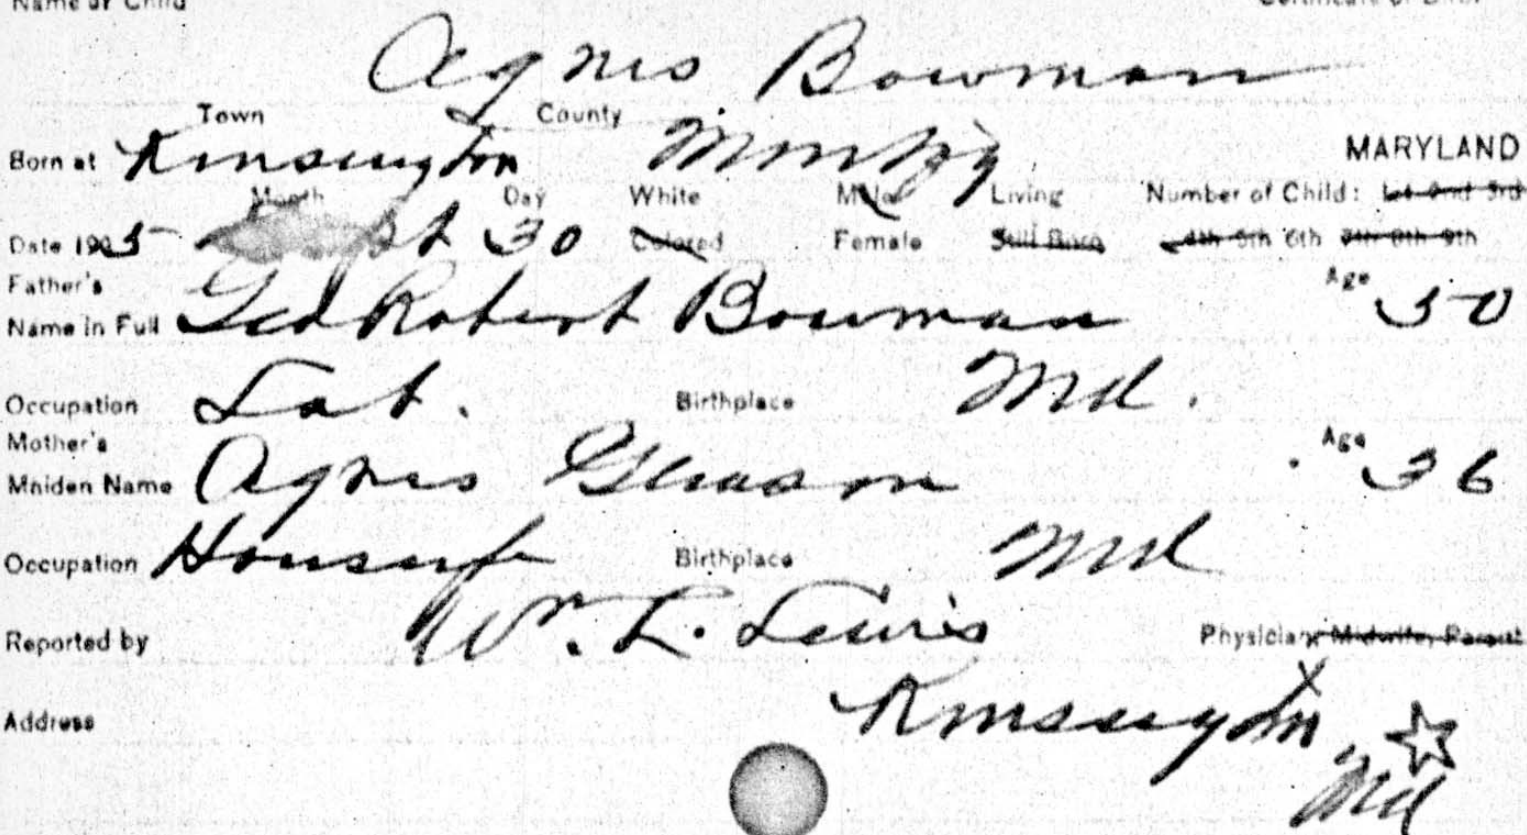 Name of Child Certificate of Birth
Agnes Bowman
Town County
Born at Kensington Montgy MARYLAND
Month Day White Male Living Number of Child: 1st 2nd 3rd
Date 1905 30 Colored Female Still Born 4th 5th 6th 7th 8th 9th
Father's Age
Name in Full Geo Robert Bowman 50
Occupation Lab. Birthplace Md.
Mother's Age
Maiden Name Agnes Gleason 36
Occupation Housewife Birthplace Md
Reported by Wm. L. Lewis Physician, Midwife, Parent
Address Kensington
Md